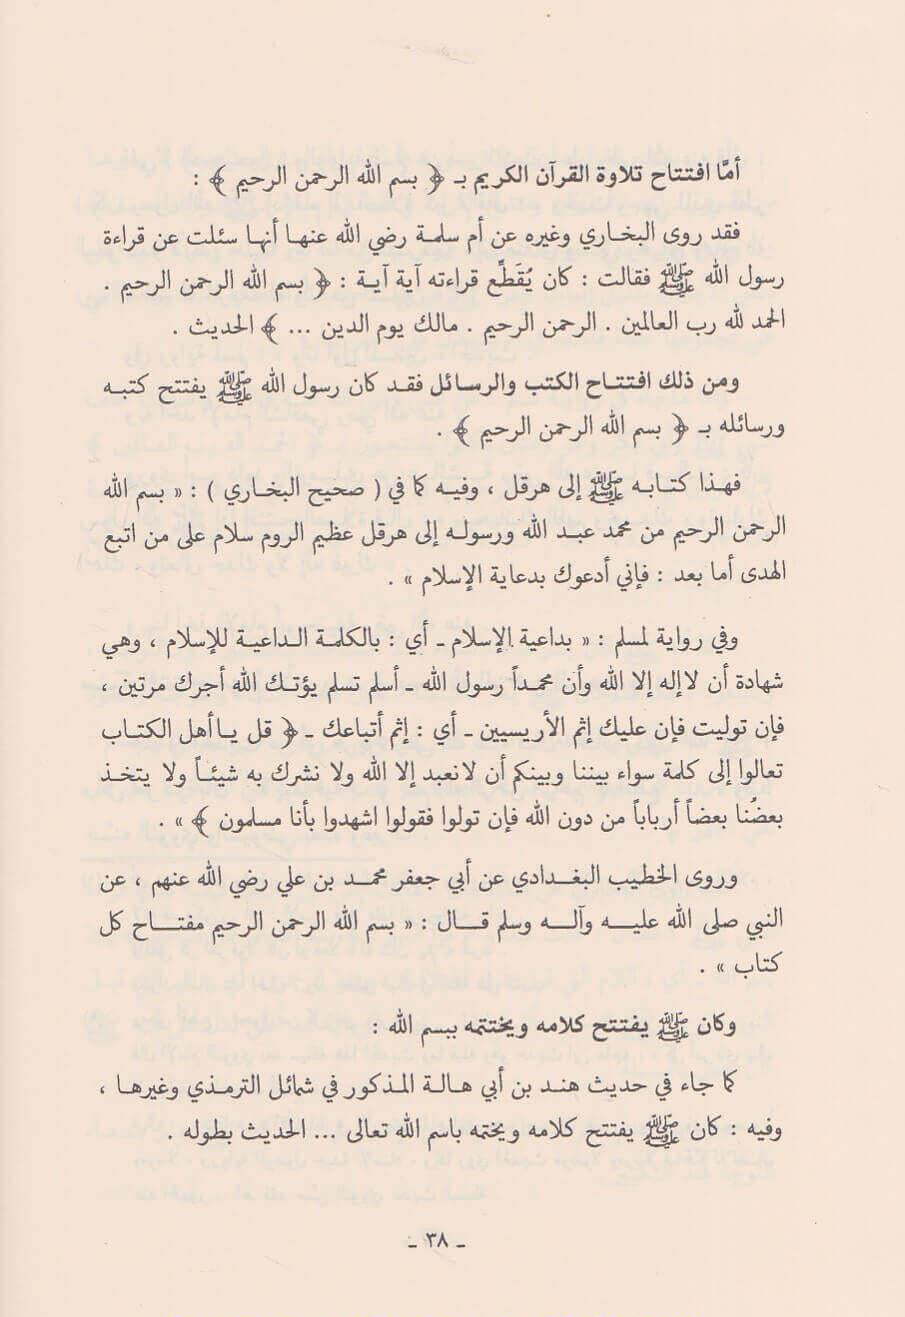 أمَّا افتتاح تلاوة القرآن الكريم بـ ﴿ بسم الله الرحمن الرحيم ﴾ :
فقد روى البخاري وغيره عن أم سلمة رضي الله عنها أنها سئلت عن قراءة
رسول الله ﷺ فقالت : كان يُقَطِّع قراءته آية آية : ﴿ بسم الله الرحمن الرحيم .
الحمد لله رب العالمين . الرحمن الرحيم . مالك يوم الدين ... ﴾ الحديث .
ومن ذلك افتتاح الكتب والرسائل فقد كان رسول الله ﷺ يفتتح كتبه
ورسائله بـ ﴿ بسم الله الرحمن الرحيم ﴾ .
فهذا كتابه ﷺ إلى هرقل ، وفيه كما في ( صحيح البخاري ) : « بسم الله
الرحمن الرحيم من محمد عبد الله ورسوله إلى هرقل عظيم الروم سلام على من اتبع
الهدى أما بعد : فإني أدعوك بدعاية الإسلام » .
وفي رواية لمسلم : « بداعية الإسلام ـ أي : بالكلمة الداعية للإسلام ، وهي
شهادة أن لاإله إلا الله وأن محمداً رسول الله ـ أسلم تسلم يؤتك الله أجرك مرتين ،
فإن توليت فإن عليك إثم الأريسيين ـ أي : إثم أتباعك ـ ﴿ قل ياأهل الكتاب
تعالوا إلى كلمة سواء بيننا وبينكم أن لانعبد إلا الله ولا نشرك به شيئاً ولا يتخذ
بعضُنا بعضاً أرباباً من دون الله فإن تولوا فقولوا اشهدوا بأنا مسلمون ﴾ » .
وروى الخطيب البغدادي عن أبي جعفر محمد بن علي رضي الله عنهم ، عن
النبي صلى الله عليه وآله وسلم قال : « بسم الله الرحمن الرحيم مفتاح كل
كتاب » .
وكان ﷺ يفتتح كلامه ويختتمه ببسم الله :
كما جاء في حديث هند بن أبي هالة المذكور في شمائل الترمذي وغيرها ،
وفيه : كان ﷺ يفتتح كلامه ويختمه باسم الله تعالى ... الحديث بطوله .
ـ ٣٨ ـ